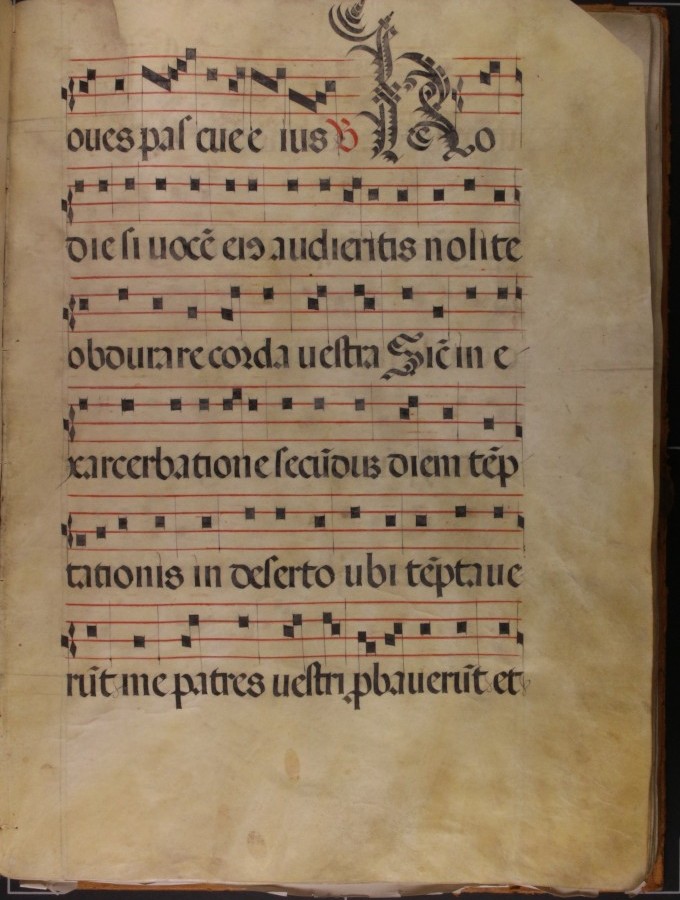 oues pas cue e ius ℣ Ho
die si uocē eiꝰ audieritis nolite
obdurare corda uestra Sic̄ in e
xarcerbatione secūduꝫ diem tēp
tationis in deserto ubi tēptaue
rūt me patres uestri ꝓbauerūt et